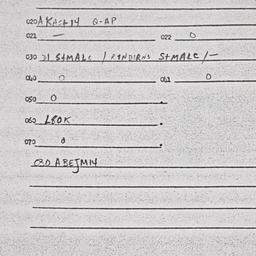 020 AKASH14 Q-AP
021 — 022 0
030 31 SMALL / SMALL / —
040 0 041 0
050 0
060 L80K
070 0
080 ABEJMN